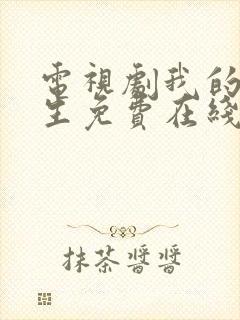 電視劇我的
生免費在綫
抹茶醬醬